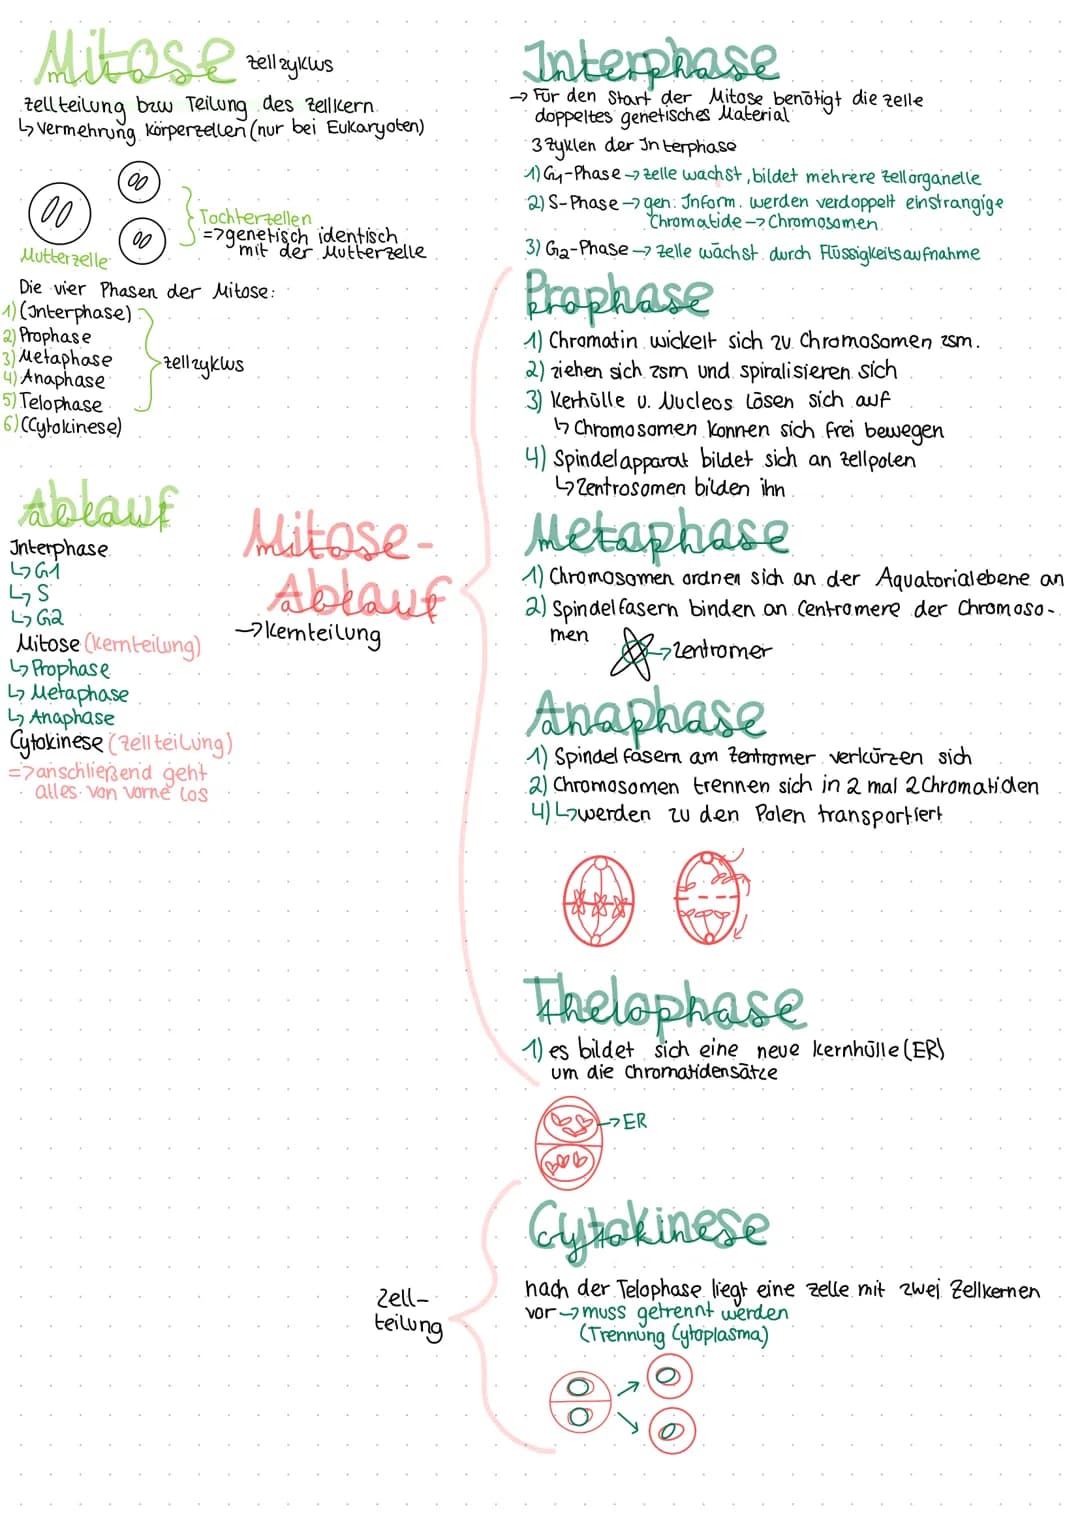 Mitose
mitose
Zellzyklus
Zellteilung bzw Teilung des Zellkern
↳ Vermehrung Körperzellen (nur bei Eukaryoten)
Mutterzelle
Tochterzellen
=> genetisch identisch
mit der Mutterzelle
Die vier Phasen der Mitose:
1) (Interphase)
2) Prophase
3) Metaphase
4) Anaphase
5) Telophase
6) (Cytokinese)
Zellzyklus
Ablauf
ablauf
Interphase
↳ G1
↳ S
↳ G2
Mitose (Kernteilung)
↳ Prophase
↳ Metaphase
↳ Anaphase
Cytokinese (Zellteilung)
=> anschließend geht
alles von vorne los
Mitose-
mitose
Ablauf
ablauf
→ Kernteilung
Interphase
interphase
→ Für den Start der Mitose benötigt die Zelle
doppeltes genetisches Material
3 Zyklen der Interphase
1) G1-Phase → Zelle wächst, bildet mehrere Zellorganelle
2) S-Phase → gen. Inform. werden verdoppelt einstrangige
Chromatide → Chromosomen
3) G2-Phase → Zelle wächst durch Flüssigkeitsaufnahme
Prophase
prophase
1) Chromatin wickelt sich zu Chromosomen zsm.
2) ziehen sich zsm und spiralisieren sich
3) Kerhülle u. Nucleos lösen sich auf
↳ Chromosomen konnen sich frei bewegen
4) Spindelapparat bildet sich an Zellpolen
↳ Zentrosomen bilden ihn
Metaphase
metaphase
1) Chromosomen ordnen sich an der Äquatorialebene an
2) Spindelfasern binden an Centromere der Chromoso-
men
→ Zentromer
Anaphase
anaphase
1) Spindelfasern am Zentromer verkürzen sich
2) Chromosomen trennen sich in 2 mal 2 Chromatiden
4) ↳ werden zu den Polen transportiert
Thelophase
thelophase
1) es bildet sich eine neue Kernhülle (ER)
um die Chromatidensätze
→ ER
Cytokinese
cytokinese
nach der Telophase liegt eine Zelle mit zwei Zellkernen
vor → muss getrennt werden
(Trennung Cytoplasma)
Zell-
teilung